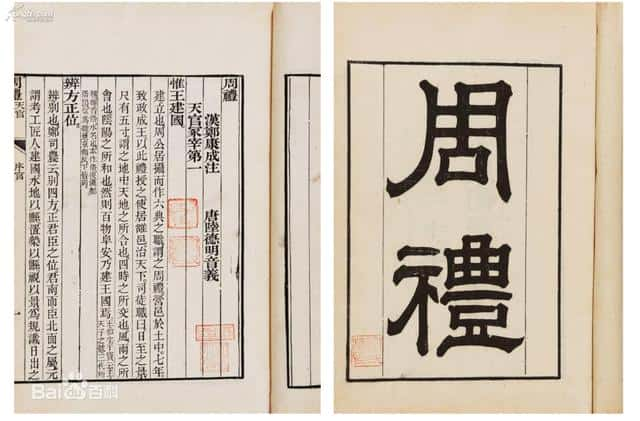 周禮
漢鄭康成注
唐陸德明音義
天官冢宰第一
惟王建國
建立也周公居攝而作六典之職謂之周禮營邑於土中七年
致政成王以此禮授之使居雒邑治天下司徒職曰日至之景
尺有五寸謂之地中天地之所合也四時之所交也風雨之所
會也陰陽之所和也然則百物阜安乃建王國焉
辨方正位
辨別也鄭司農云別四方正君臣之位君南面臣北面之屬元
謂考工匠人建國水地以縣置槷以縣視以景爲規識日出之
周禮
天官
序官
周禮
Bai百科